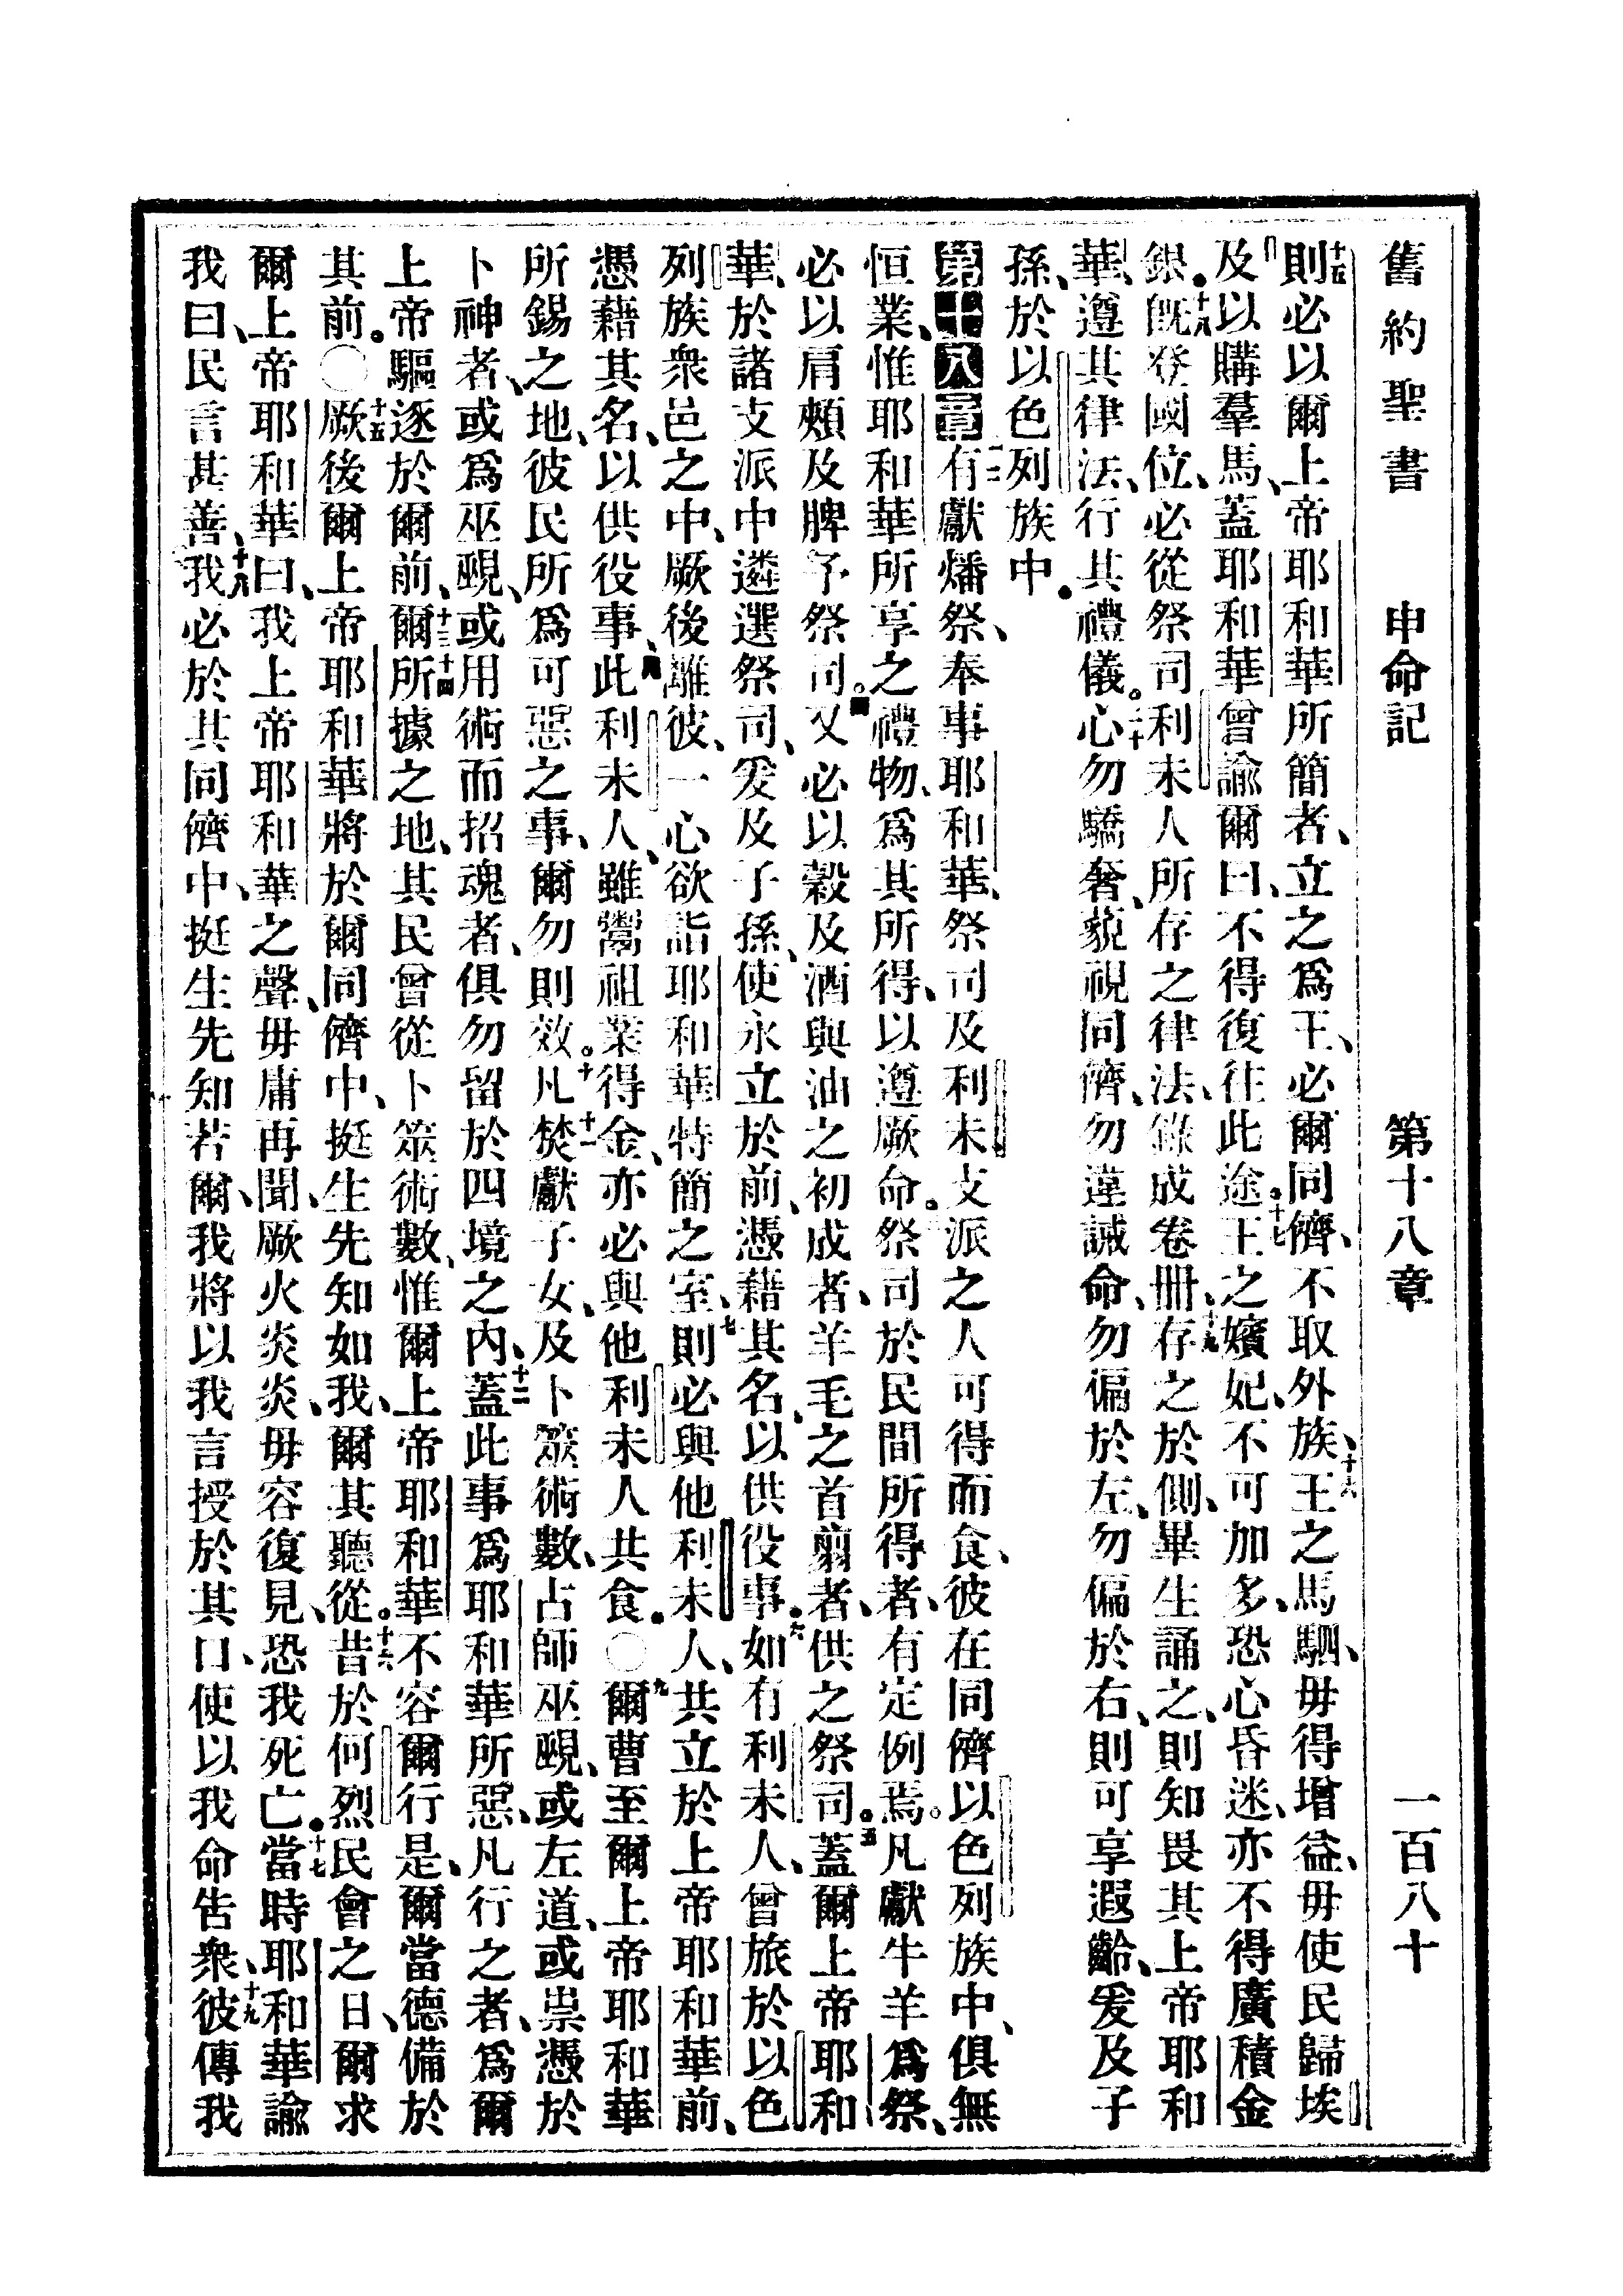 舊約聖書 申命記 第十八章 一百八十
十五則必以爾上帝耶和華所簡者、立之爲王、必爾同儕、不取外族、十六王之馬駟、毋得增益、毋使民歸埃
及以購羣馬、蓋耶和華曾諭爾曰、不得復往此途。十七王之嬪妃、不可加多、恐心昏迷、亦不得廣積金
銀。十八旣登國位、必從祭司利未人所存之律法、錄成卷冊、十九存之於側、畢生誦之、則知畏其上帝耶和
華、遵其律法、行其禮儀。二十心勿驕奢、藐視同儕、勿違誡命、勿偏於左、勿偏於右、則可享遐齡、爰及子
孫、於以色列族中。
第十八章 一二有獻燔祭、奉事耶和華、祭司及利未支派之人可得而食、彼在同儕以色列族中、俱無
恒業、惟耶和華所享之禮物、爲其所得、以遵厥命。三祭司於民間所得者、有定例焉。凡獻牛羊爲祭、
必以肩頰及脾予祭司。四又必以穀及酒與油之初成者、羊毛之首翦者、供之祭司。五蓋爾上帝耶和
華、於諸支派中遴選祭司、爰及子孫、使永立於前、憑藉其名、以供役事。六如有利未人、曾旅於以色
列族衆邑之中、厥後離彼、一心欲詣耶和華特簡之室、七則必與他利未人、共立於上帝耶和華前、
憑藉其名、以供役事、八此利未人、雖鬻祖業得金、亦必與他利未人共食。〇九爾曹至爾上帝耶和華
所錫之地、彼民所爲可惡之事、爾勿則效。十十一凡焚獻子女、及卜筮術數、占師巫覡、或左道、或祟憑於
卜神者、或爲巫覡、或用術而招魂者、俱勿留於四境之內、十二蓋此事爲耶和華所惡、凡行之者、爲爾
上帝驅逐於爾前、十三爾十四所據之地、其民曾從卜筮術數、惟爾上帝耶和華不容爾行是、爾當德備於
其前。〇十五厥後爾上帝耶和華將於爾同儕中、挺生先知如我、爾其聽從。十六昔於何烈民會之日、爾求
爾上帝耶和華曰、我上帝耶和華之聲、毋庸再聞、厥火炎炎、毋容復見、恐我死亡。十七當時耶和華諭
我曰、民言甚善、十八我必於其同儕中、挺生先知若爾、我將以我言授於其口、使以我命告衆、十九彼傳我